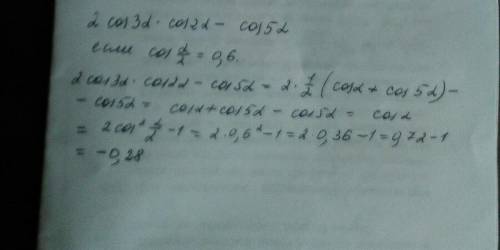 2 cos3α · cos2α − cos5α
если cos α/2 = 0,6.
2cos3α · cos2α − cos5α = 2 · 1/2 (cosα + cos5α) −
− cos5α = cosα + cos5α − cos5α = cosα
= 2cos² α/2 − 1 = 2·0,6² − 1 = 2·0,36 − 1 = 0,72 − 1
= −0,28